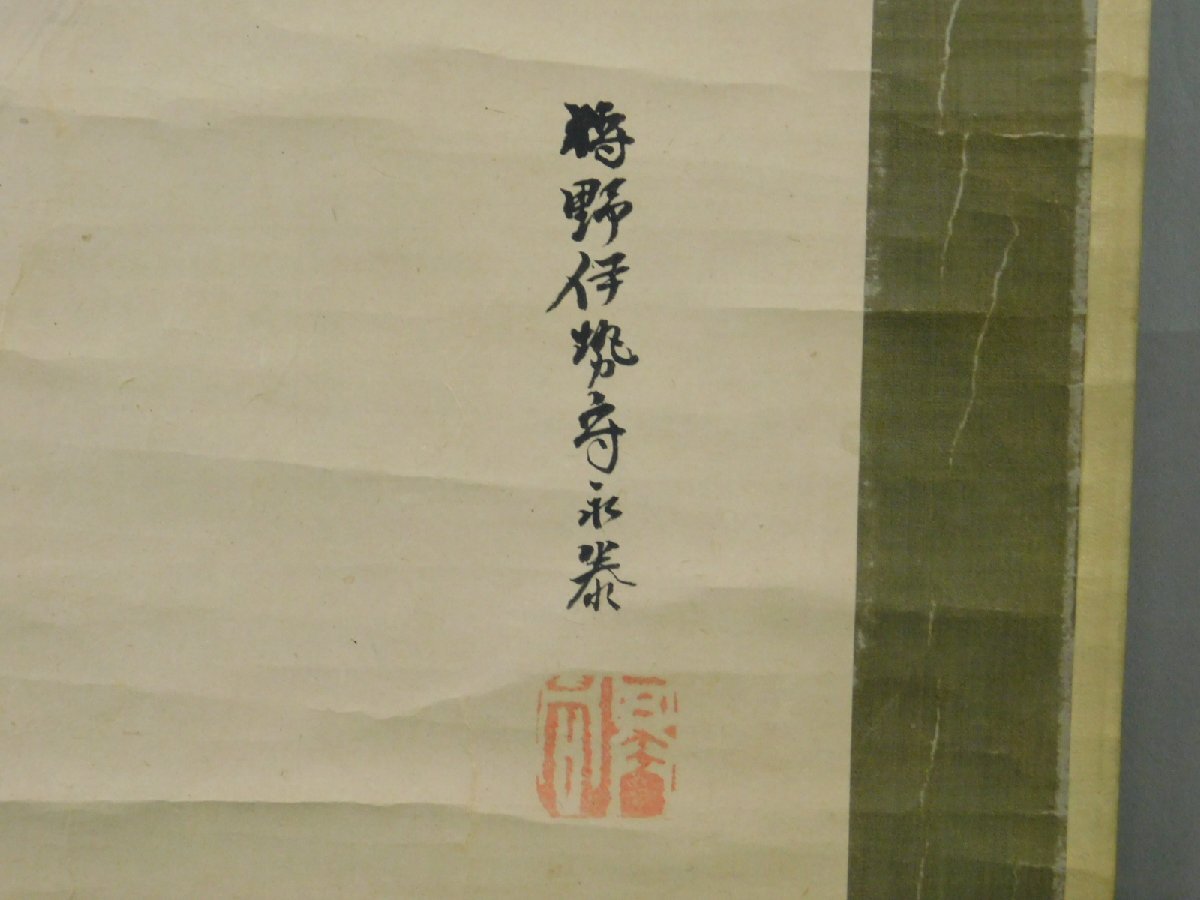 狩野伊勢守永泰